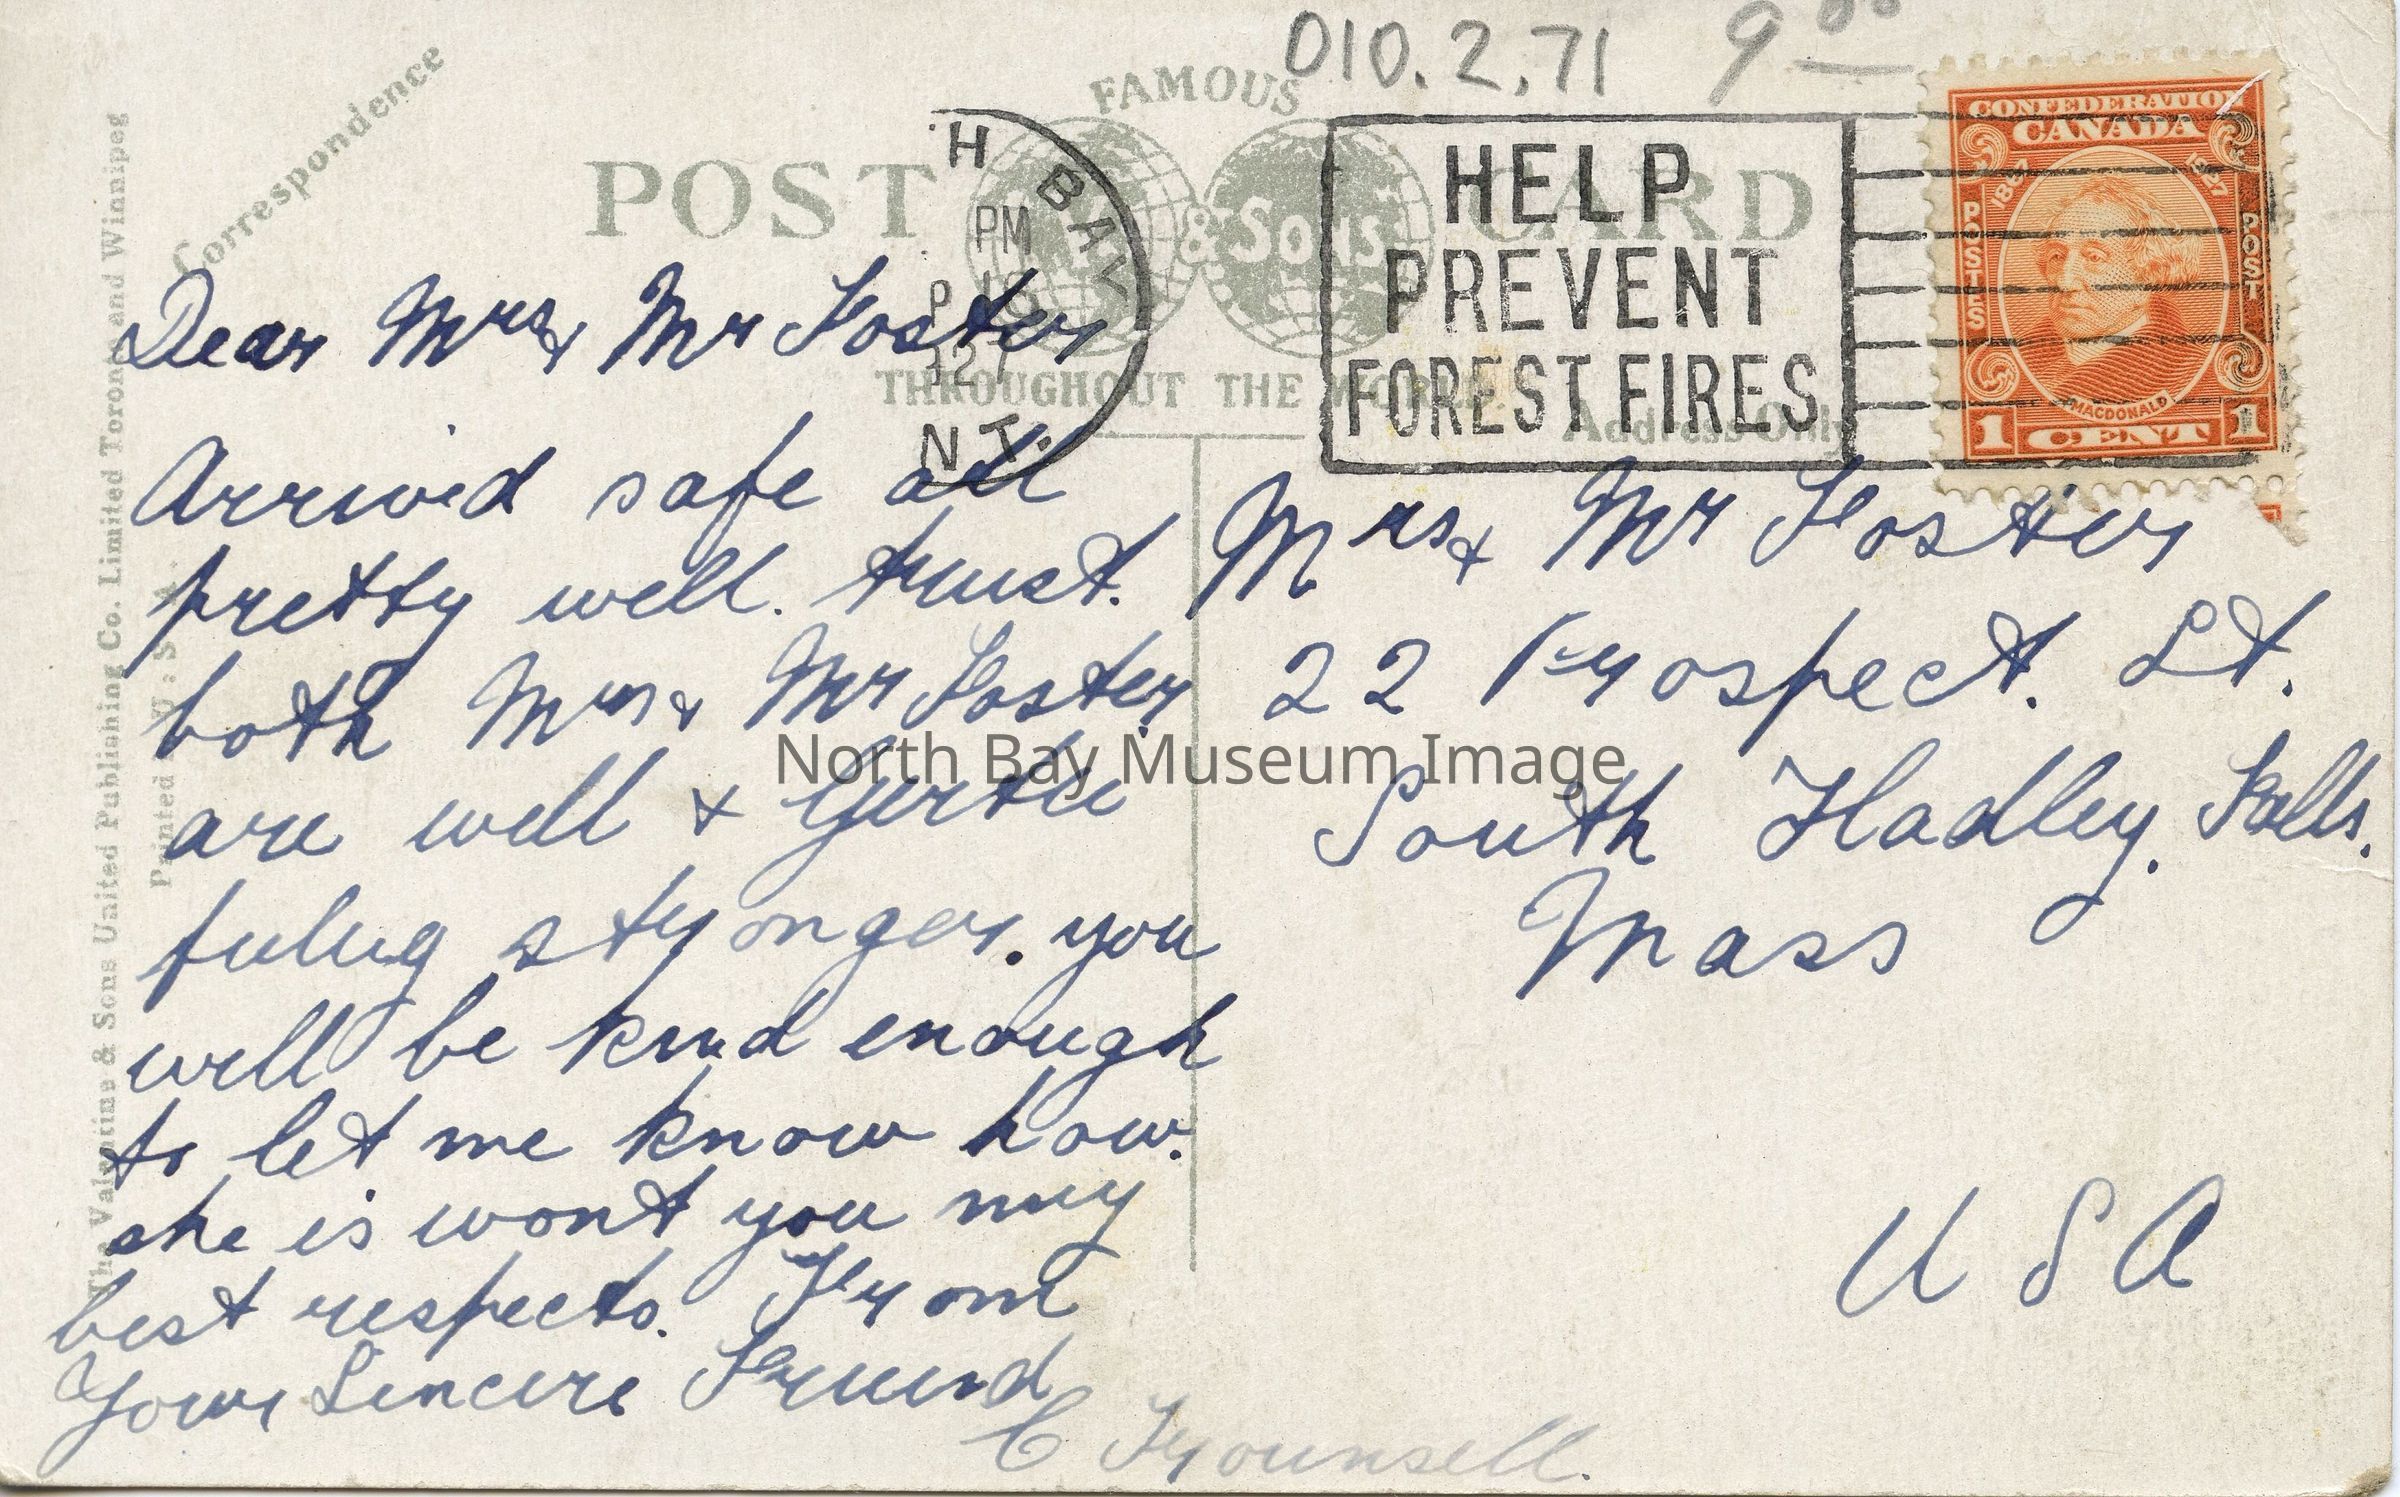 010.2.71 9 00
FAMOUS
POST CARD
& SONS
THROUGHOUT THE WORLD.
H BAY
PM
P 19
127
NT.
HELP
PREVENT
FOREST FIRES
CONFEDERATION
CANADA
1867 1927
POSTES POST
MACDONALD
1 CENT 1
Correspondence
Address Only
The Valentine & Sons United Publishing Co. Limited Toronto and Winnipeg
Printed U. S. A.
Dear Mrs & Mr Foster
Arrived safe all
pretty well. trust.
both Mrs & Mr Foster.
are well & Gertie
feeling stronger. you
will be kind enough
to let me know how.
she is wont you my
best respects. From
Your Sincere Friend
C
Mrs & Mr Foster
22 Prospect. St.
South Hadley. Falls.
Mass
U S A
North Bay Museum Image